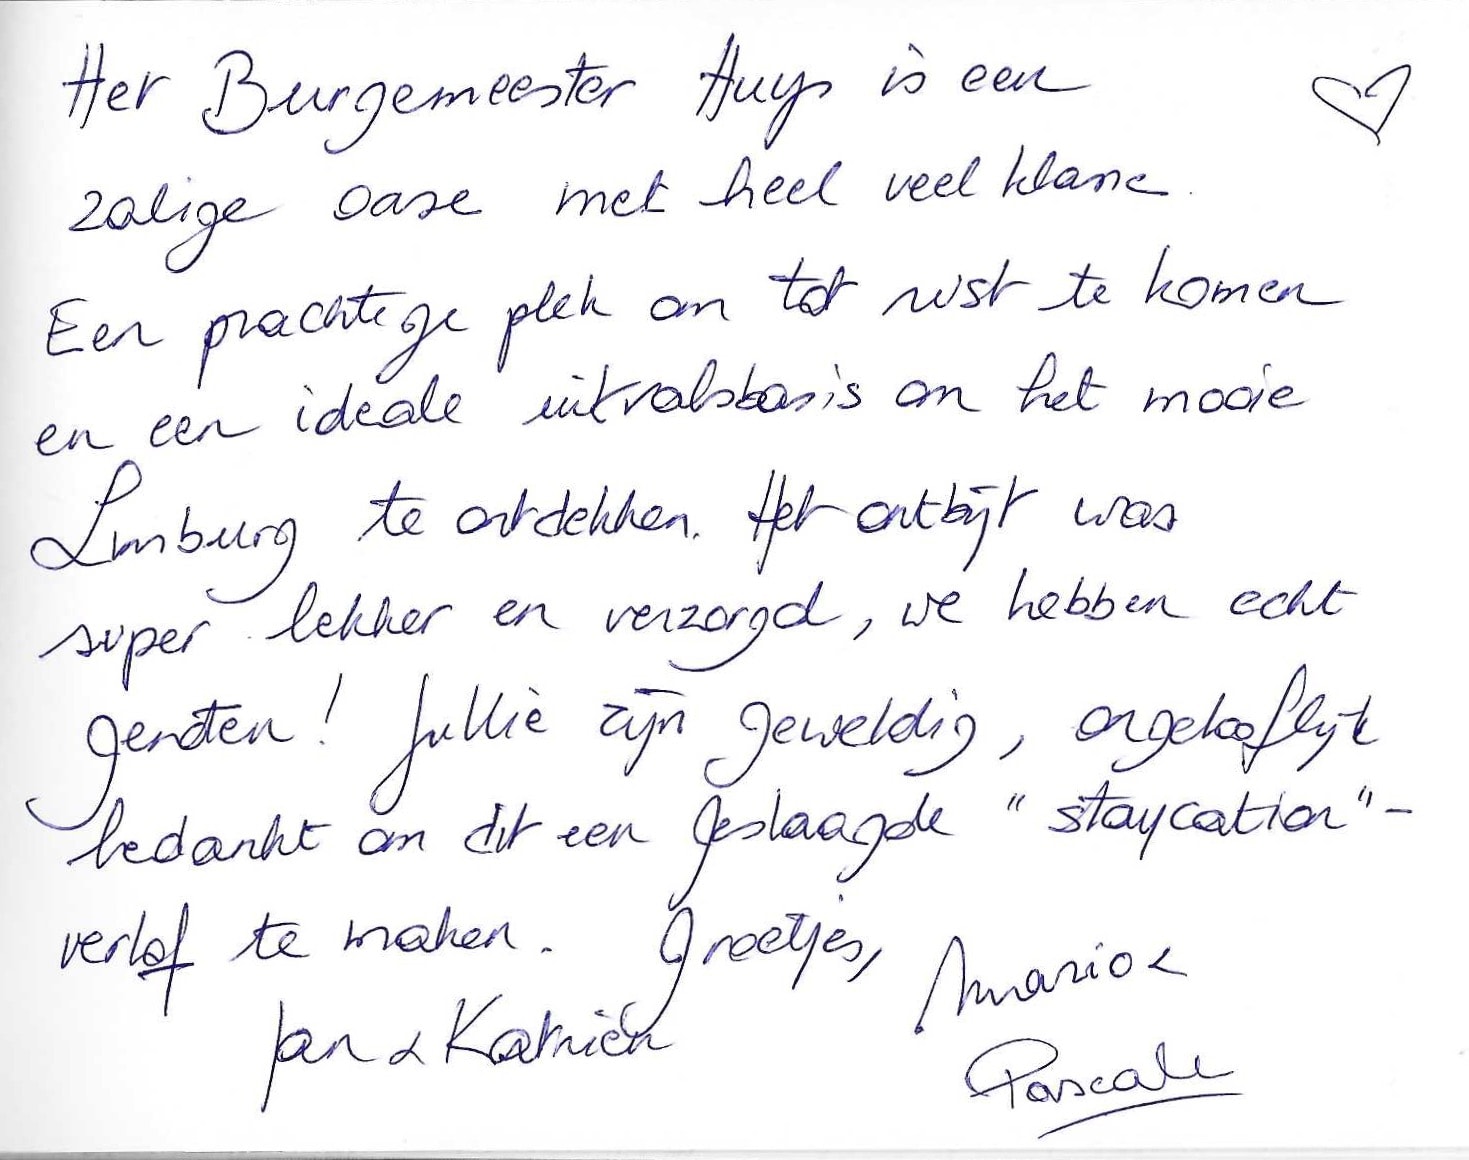 Het Burgemeester Huys is een
zalige oase met heel veel klasse.
Een prachtige plek om tot rust te komen
en een ideale uitvalsbasis om het mooie
Limburg te ontdekken. Het ontbijt was
super lekker en verzorgd, we hebben echt
genoten! Jullie zijn geweldig, ongelooflijk
bedankt om dit een geslaagde "staycation"-
verlof te maken. Groetjes,
Jan & Katrien Mario &
Pascale